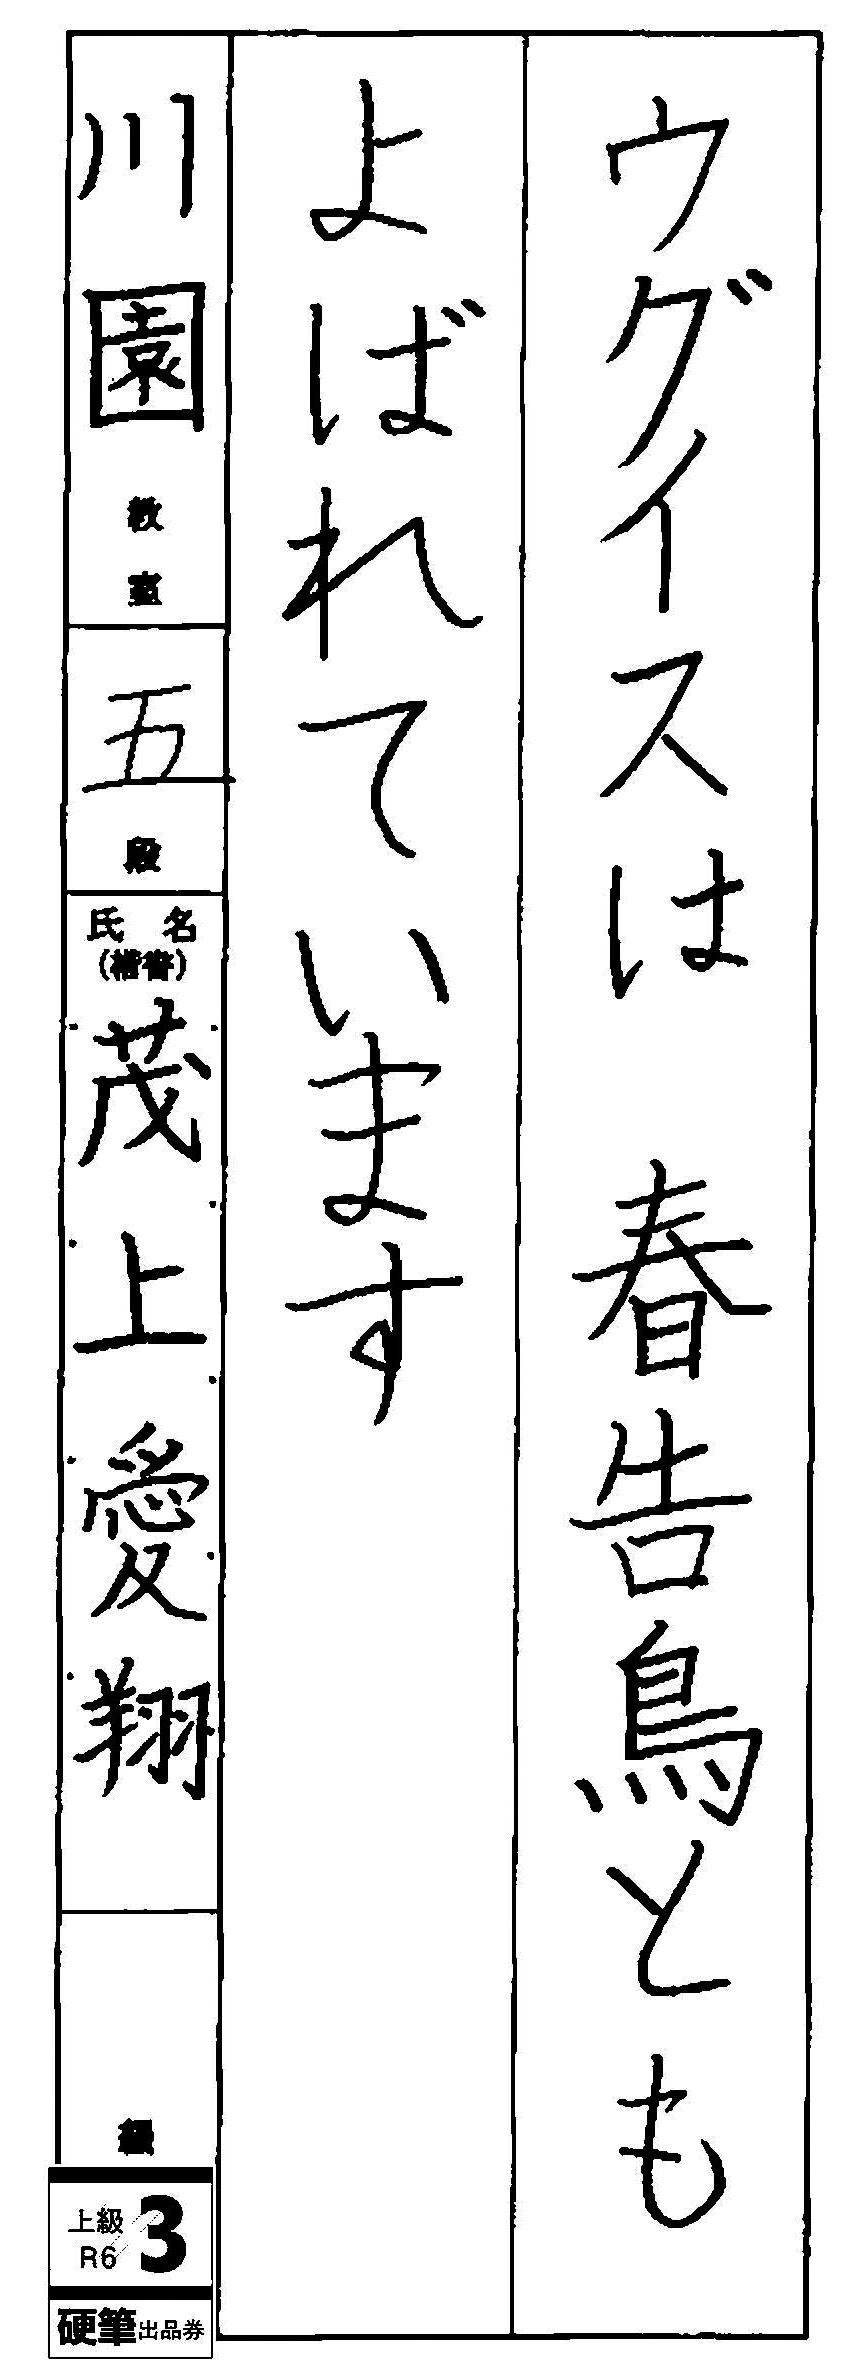 ウグイスは　春告鳥とも
よばれています
川園教室
五段
氏名
(楷書)
茂上愛翔
級
上級
R6
3
硬筆出品券